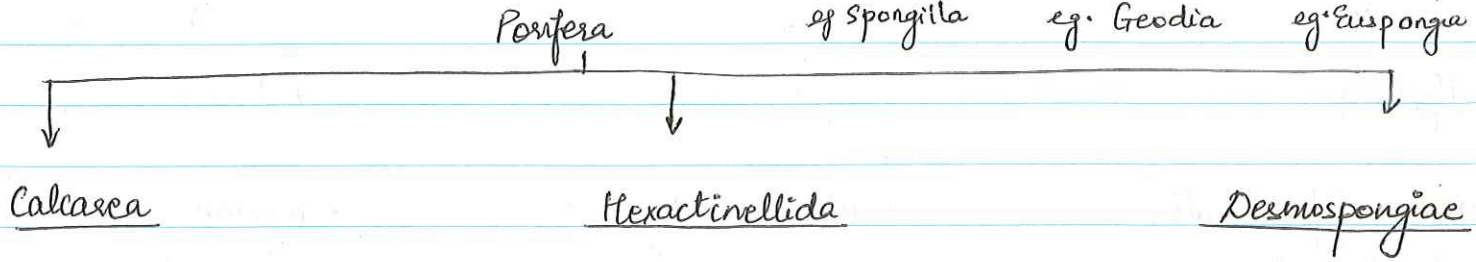 Porifera eg Spongilla eg. Geodia eg. Euspongia
Calcarea Hexactinellida Desmospongiae